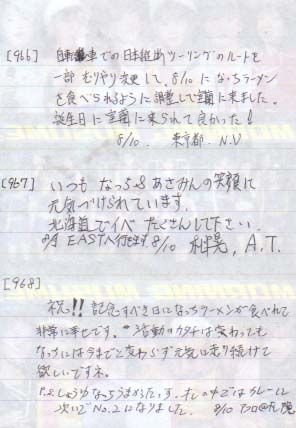 [966] 自転車での日本縦断ツーリングのルートを
一部 むりやり変更して、8/10 に なっちラーメン
を食べられるように調整して室蘭に来ました。
誕生日に室蘭に来られて良かった!
8/10. 東京都. N.V
[967] いつも なっち&あさみんの笑顔に
元気づけられています。
北海道でイベ たくさんして下さい.
EASTへ行きます 8/10 札幌, A.T.
[968]
祝!! 記念すべき日になっちラーメンが食べれて
非常に幸せです。 活動のカタチは変わっても
なっちには今までと変わらず元気に走り続けて
欲しいですネ。
P.S しょうゆなっちうまかったっす. オレの中ではカレーに
次いでNo.2になりました. 8/10